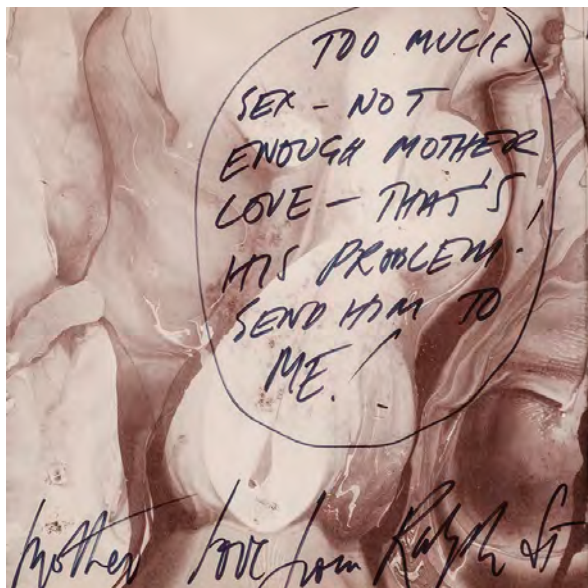 TOO MUCH
SEX – NOT
ENOUGH MOTHER
LOVE – THAT'S
HIS PROBLEM!
SEND HIM TO
ME!
Mother love from Ralph St